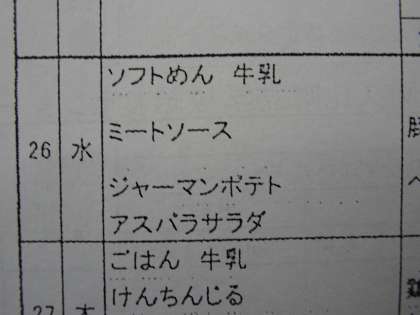 ソフトめん 牛乳
ミートソース
26 水
ジャーマンポテト
アスパラサラダ
ごはん 牛乳
けんちんじる
27 木